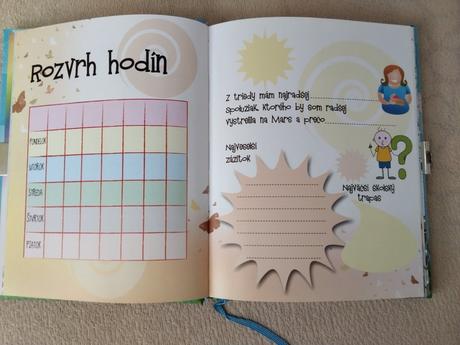 Rozvrh hodín
PONDELOK
UTOROK
STREDA
ŠTVRTOK
PIATOK
Z triedy mám najradšej
spolužiak, ktorého by som radšej
vystrelila na Mars a prečo
Najveselší
zážitok
Najväčší školský
trapas